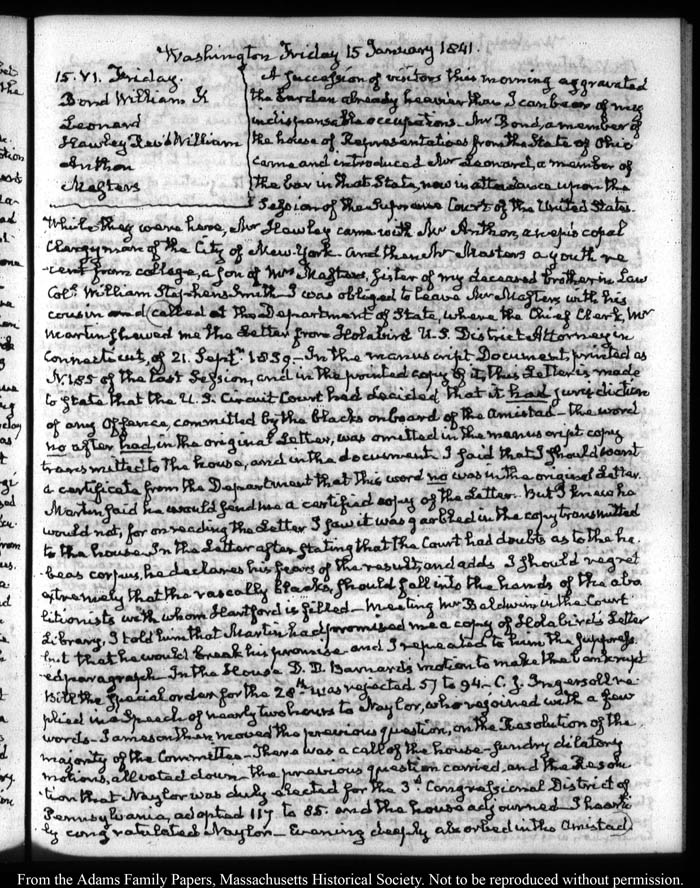 Washington Friday 15 January 1841.
15. VI. Friday.
Bond William K
Leonard
Hawley Revd William
Anthon
Masters
A succession of visitors this morning aggravated
the burden already heavier than I can bear of my
indispensable occupations. Mr Bond, a member of
the house of Representatives from the State of Ohio
came and introduced Mr Leonard, a member of
the bar in that State, now in attendance upon the
Session of the Supreme Court of the United States.
While they were here, Mr Hawley came with Mr Anthon, an episcopal
Clergyman of the City of New-York. And then Mr Masters a youth re
cent from college, a son of Mrs Masters, sister of my deceased brother in Law
Coll. William Stephens Smith. I was obliged to leave Mr Masters with his
cousin and called at the Department of State, where the Chief Clerk, Mr
Martin shewed me the Letter from Holabird U.S. District Attorney in
Connecticut, of 21. Septr 1839 — In the manuscript Document, printed as
N. 185 of the last Session, and in the printed copy of it, this Letter is made
to state that the U.S. Circuit Court had decided that it had jurisdiction
of any offence, committed by the blacks onboard of the Amistad — the word
no after had in the original Letter, was omitted in the manuscript copy
transmitted to the house, and in the document. I said that I should want
a certificate from the Department that this word no was in the original Letter.
Martin said he would send me a certified copy of the Letter. But I knew he
would not, for on reading the Letter I saw it was garbled in the copy transmitted
to the house. In the Letter after stating that the Court had doubts as to the ha-
beas corpus, he declares his fears of the result, and adds I should regret
extremely that the rascally blacks, should fall into the hands of the abo
litionists with whom Hartford is filled — Meeting Mr Baldwin in the Court
Library, I told him that Martin had promised me a copy of Holabird's Letter
but that he would break his promise and I repeated to him the suppress-
ed paragraph. In the House D. D. Barnard's motion to make the bankrupt
Bill the special order for the 28th was rejected 57 to 94 — C. J. Ingersoll re-
plied in a Speech of nearly two hours to Naylor, who rejoined with a few
words — Jameson then moved the previous question, on the Resolution of the
majority of the Committee — There was a call of the house — sundry dilatory
motions, all voted down — the previous question carried, and the Resolu
tion that Naylor was duly elected for the 3d Congressional District of
Pennsylvania, adopted 117 to 85. and the house adjourned. I hearti
ly congratulated Naylor — Evening deeply absorbed in the Amistad.
From the Adams Family Papers, Massachusetts Historical Society. Not to be reproduced without permission.